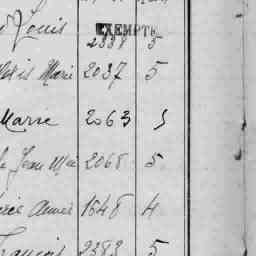 Louis EXEMPTÉ
2338 5
Marie 2037 5
Marie 2063 5
Jean Mie 2068 5
Aimée 1648 4
François 2383 5